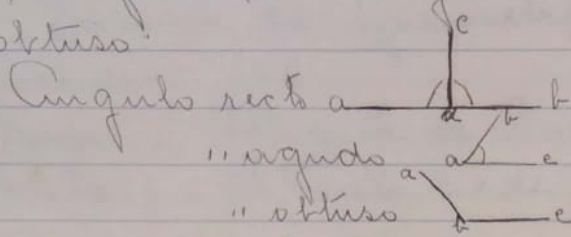 obtuso.
c
Angulo recto a d b
" agudo a b c
" obtuso a b c